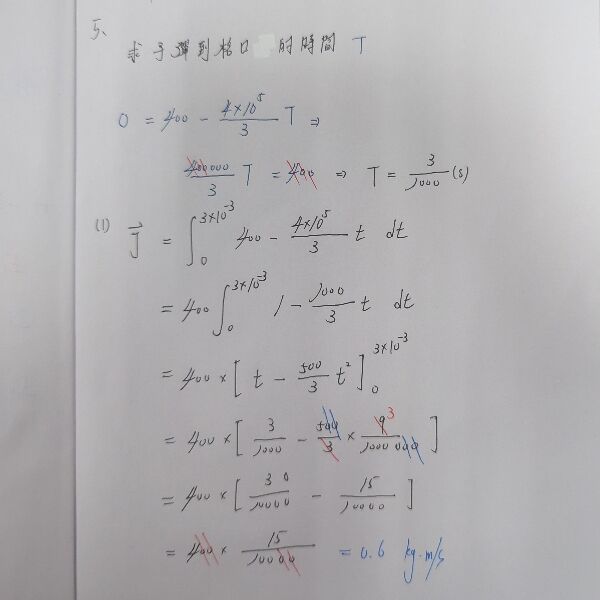 5、
求子彈到格口 的時間 T
0 = 400 - 4×10⁵/3 T ⇒
400000/3 T = 400 ⇒ T = 3/1000 (s)
(1) J⃗ = ∫₀^{3×10⁻³} 400 - 4×10⁵/3 t dt
= 400 ∫₀^{3×10⁻³} 1 - 1000/3 t dt
= 400 × [ t - 500/3 t² ]₀^{3×10⁻³}
= 400 × [ 3/1000 - 500/3 × 9/1000000 ] 3
= 400 × [ 30/10000 - 15/10000 ]
= 400 × 15/10000 = 0.6 kg·m/s